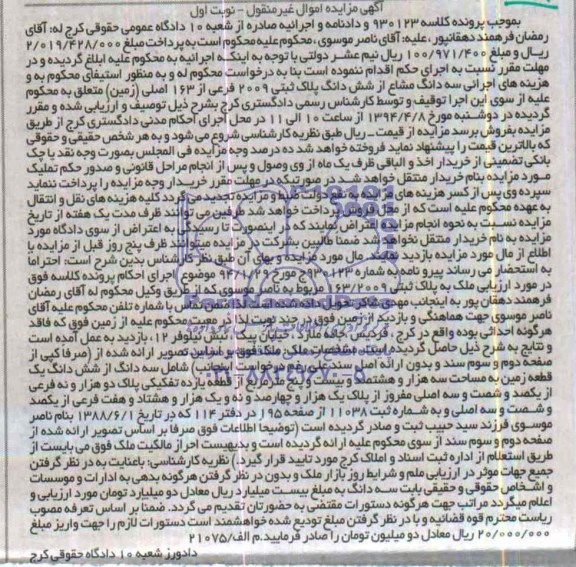 آگهی مزایده اموال غیرمنقول - نوبت اول
بموجب پرونده کلاسه ۹۳۰۱۲۳ و دادنامه و اجرائیه صادره از شعبه ۱۰ دادگاه عمومی حقوقی کرج له: آقای
رمضان فرهمند دهقانپور، علیه: آقای ناصر موسوی، محکوم علیه محکوم است به پرداخت مبلغ ۲/۰۱۹/۴۲۸/۰۰۰
ریال و مبلغ ۱۰۰/۹۷۱/۴۰۰ ریال نیم عشر دولتی با توجه به اینکه اجرائیه به محکوم علیه ابلاغ گردیده و در
مهلت مقرر نسبت به اجرای حکم اقدام ننموده است بنا به درخواست محکوم له و به منظور استیفای محکوم به و
هزینه های اجرائی سه دانگ مشاع از شش دانگ پلاک ثبتی ۲۰۰۹ فرعی از ۱۶۳ اصلی (زمین) متعلق به محکوم
علیه از سوی این اجرا توقیف و توسط کارشناس رسمی دادگستری کرج بشرح ذیل توصیف و ارزیابی شده و مقرر
گردیده در دوشنبه مورخ ۱۳۹۴/۴/۸ از ساعت ۱۰ الی ۱۱ در محل اجرای احکام مدنی دادگستری کرج از طریق
مزایده بفروش برسد مزایده از قیمت ریال طبق نظریه کارشناسی شروع می شود و به هر شخص حقیقی و حقوقی
که بالاترین قیمت را پیشنهاد نماید فروخته خواهد شد ده درصد وجه مزایده فی المجلس بصورت وجه نقد یا چک
بانکی تضمینی از خریدار اخذ و الباقی ظرف یک ماه از وی وصول و پس از انجام مراحل قانونی و صدور حکم تملیک
مورد مزایده بنام خریدار منتقل خواهد شد در صورتیکه در مهلت مقرر خریدار وجه مزایده را پرداخت ننماید
سپرده وی پس از کسر هزینه های مزایده به نفع دولت ضبط و مزایده تجدید می گردد کلیه هزینه های نقل و انتقال
به عهده محکوم علیه است که از محل فروش پرداخت خواهد شد طرفین می توانند ظرف مدت یک هفته از تاریخ
مزایده نسبت به نحوه انجام مزایده اعتراض نمایند که در اینصورت تا رسیدگی به اعتراض از سوی دادگاه مورد
مزایده به نام خریدار منتقل نخواهد شد ضمنا طالبین بشرکت در مزایده میتوانند ظرف پنج روز قبل از مزایده با
اطلاع از مال مورد مزایده بازدید نمایند مال مورد مزایده و بهای آن طبق نظر کارشناس بدین شرح است: احتراما
به استحضار می رساند پیرو نامه به شماره ۹۳۰۱۲۳ج مورخ ۹۴/۱/۲۹ موضوع اجرای احکام پرونده کلاسه فوق
در مورد ارزیابی ملک به پلاک ثبتی ۱۶۳/۲۰۰۹ مربوط به ناصر موسوی که از طریق وکیل محکوم له آقای رمضان
فرهمند دهقان پور به اینجانب مهدی شاکر تحویل داده شده است ضمن تماس با شماره تلفن محکوم علیه آقای
ناصر موسوی جهت هماهنگی و بازدید از زمین فوق در چند نوبت لذا در معیت محکوم علیه از زمین فوق که فاقد
هرگونه احداثی بوده واقع در کرج، فردیس جاده ملارد، خیابان پیکان، نبش نیلوفر ۱۲، بازدید به عمل آمده است
و نتایج به شرح ذیل حاصل گردیده است. مشخصات ملکی ملک فوق بر اساس تصویر ارائه شده از (صرفا کپی از
صفحه دوم و سوم سند و بدون ارائه اصل سند علی رغم درخواست اینجانب) شامل سه دانگ از شش دانگ یک
قطعه زمین به مساحت سه هزار و هشتصد و بیست و پنج مترمربع از قطعه یازده تفکیکی پلاک دو هزار و نه فرعی
از یکصد و شصت و سه اصلی مفروز از پلاک یک هزار و چهارصد و نه و یک هزار و هشتاد و هفت فرعی از یکصد
و شصت و سه اصلی و به شماره ثبت ۱۱۰۳۸ از صفحه ۱۹۵ در دفتر ۱۱۴ که در تاریخ ۱۳۸۸/۶/۱ بنام ناصر
موسوی فرزند سید حبیب ثبت و صادر گردیده است (توضیحا اطلاعات فوق صرفا بر اساس تصویر ارائه شده از
صفحه دوم و سوم سند از سوی محکوم علیه ارائه گردیده است و بدیهیست احراز مالکیت ملک فوق می بایست از
طریق استعلام از اداره ثبت اسناد و املاک کرج مورد تایید قرار گیرد.) نظریه کارشناسی: باعنایت به در نظر گرفتن
جمیع جهات موثر در ارزیابی ملم و شرایط روز بازار ملک و بدون در نظر گرفتن هرگونه بدهی به ادارات و موسسات
و اشخاص حقوقی و حقیقی بابت سه دانگ به مبلغ بیست میلیارد ریال معادل دو میلیارد تومان مورد ارزیابی و
اعلام میگردد مراتب جهت هرگونه دستورات مقتضی به حضورتان تقدیم می گردد. ضمنا بر اساس تعرفه مصوب
ریاست محترم قوه قضائیه و با در نظر گرفتن مبلغ تودیع شده خواهشمند است دستورات لازم را جهت واریز مبلغ
۲۰/۰۰۰/۰۰۰ ریال معادل دو میلیون تومان را صادر فرمایید.م الف/۲۱۰۷۵
دادورز شعبه ۱۰ دادگاه حقوقی کرج